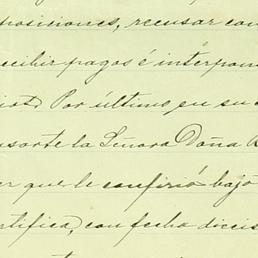 posiciones, recusar con
ecibir pagos é interpon
Por último, en su
sorte la Señora Doña
er que le confirió bajo
rtifica, con fecha diecis